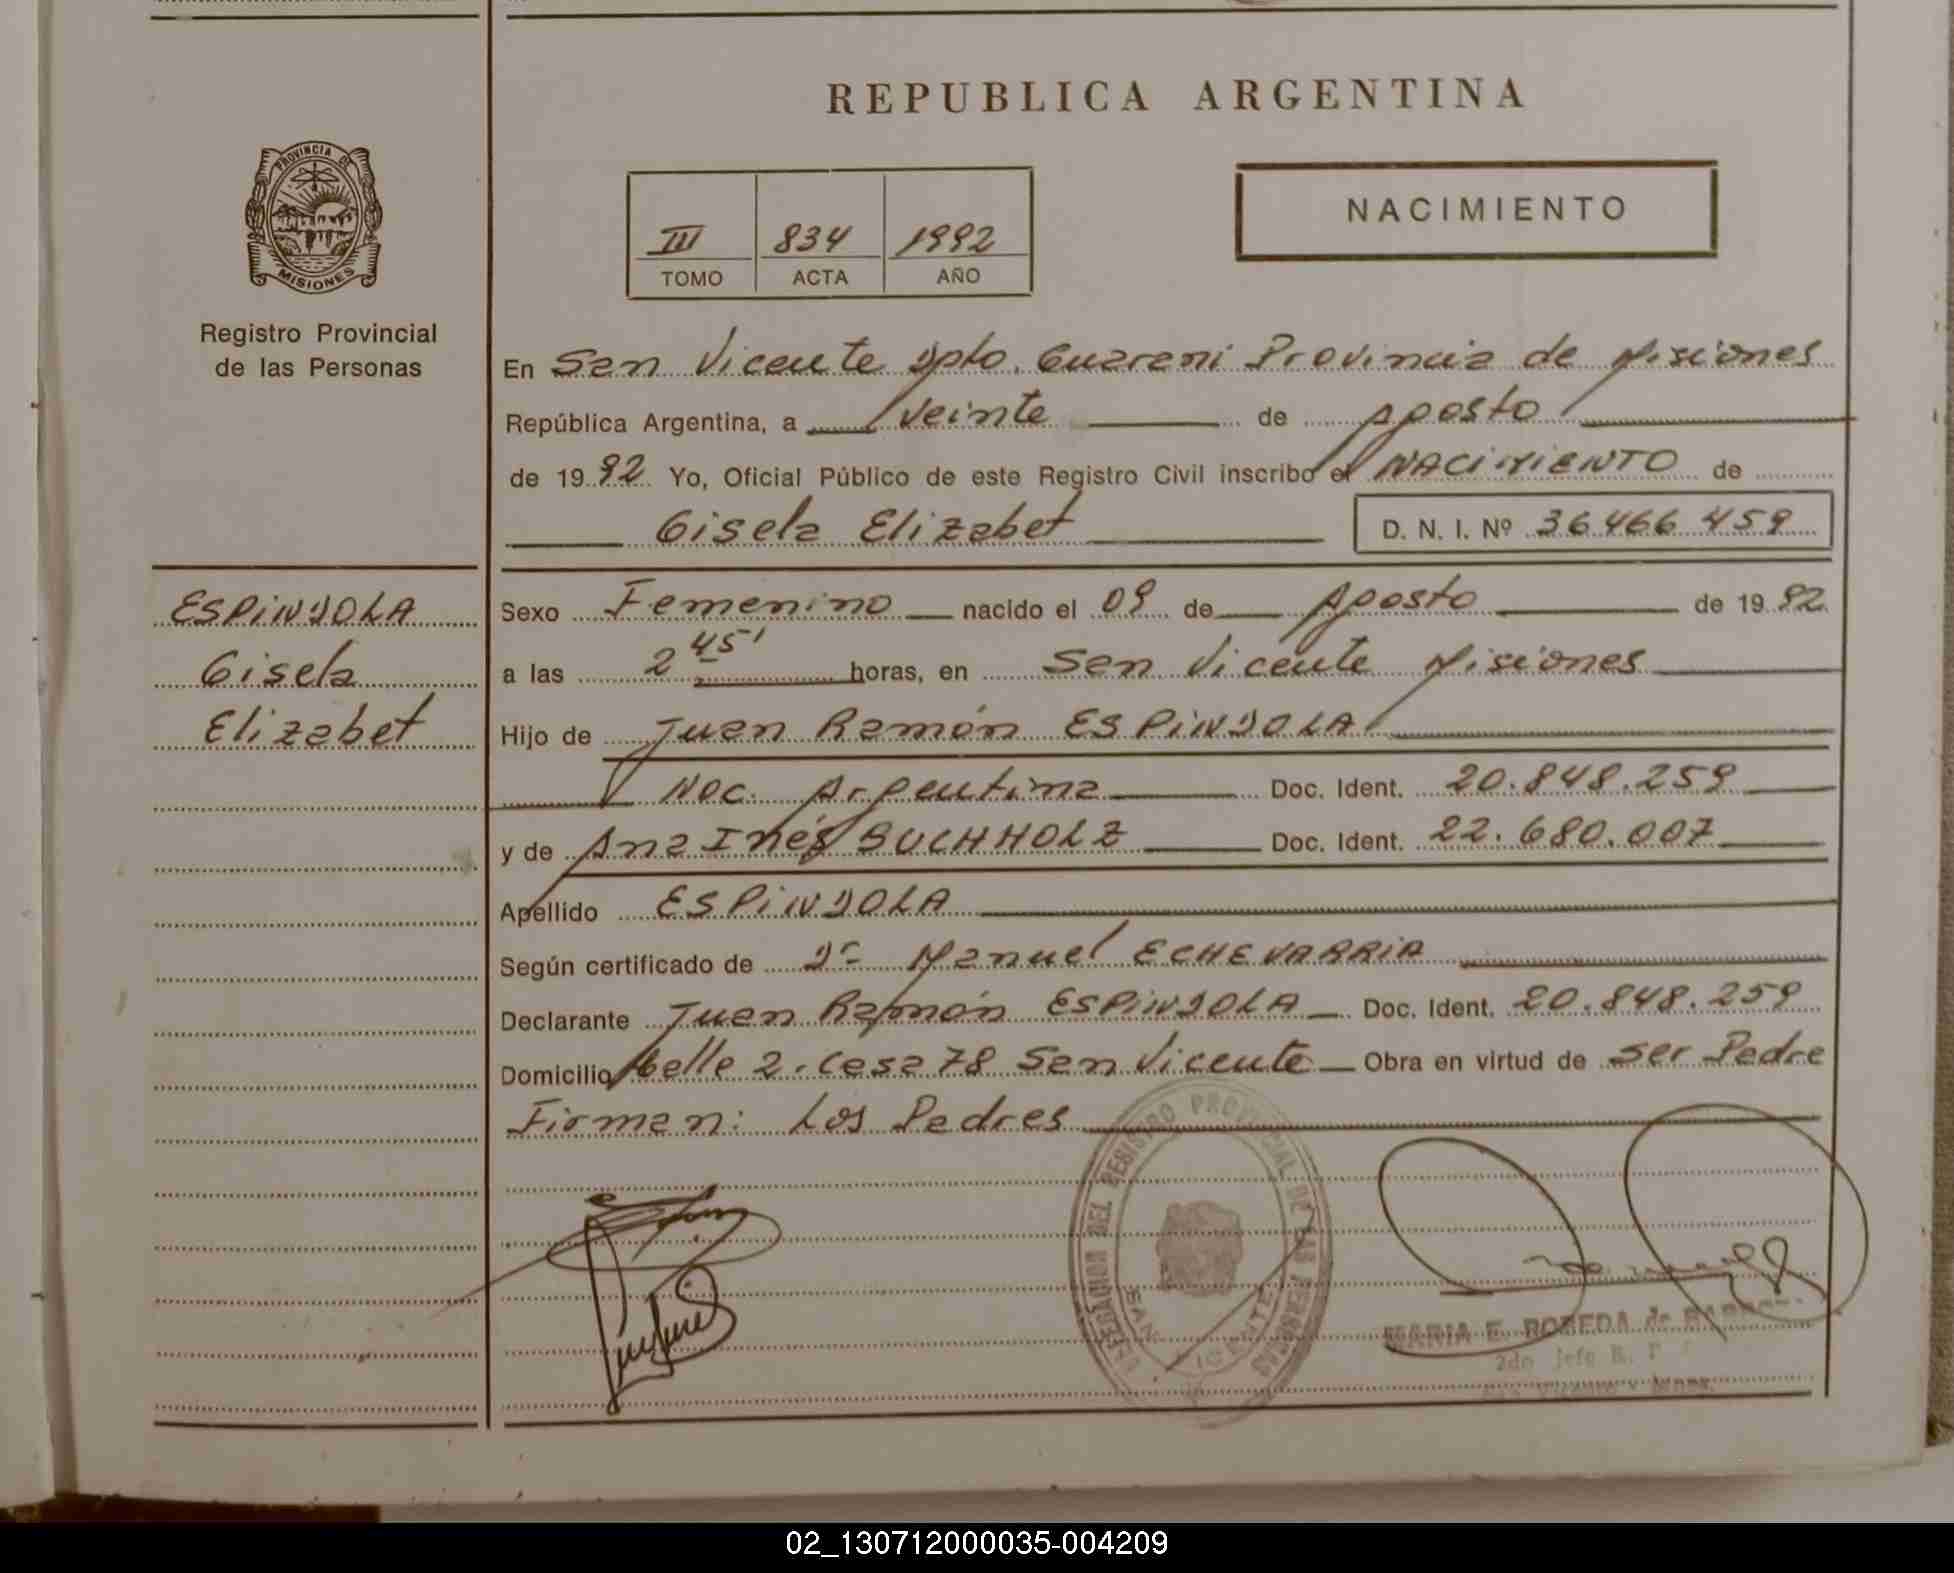 REPUBLICA ARGENTINA
PROVINCIA DE
MISIONES
Registro Provincial
de las Personas
III 834 1992
TOMO ACTA AÑO
NACIMIENTO
En San Vicente Dpto. Guarani Provincia de Misiones
República Argentina, a veinte de Agosto
de 1992 Yo, Oficial Público de este Registro Civil inscribo el NACIMIENTO de
Gisela Elizabet D. N. I. Nº 36.466.459
ESPINDOLA
Gisela
Elizabet
Sexo Femenino nacido el 09 de Agosto de 1992
a las 2 45' horas, en San Vicente Misiones
Hijo de Juan Ramón ESPINDOLA
Nac. Argentina Doc. Ident. 20.848.259
y de Ana Inés BUCHHOLZ Doc. Ident. 22.680.007
Apellido ESPINDOLA
Según certificado de Dr. Manuel ECHEVARRIA
Declarante Juan Ramón ESPINDOLA Doc. Ident. 20.848.259
Domicilio Calle 2. Casa 78 San Vicente Obra en virtud de ser Padre
Firman: Los Padres
DELEGACION DEL REGISTRO PROVINCIAL DE LAS PERSONAS
SAN VICENTE
MARIA E. ROBEDA de
2do Jefe R. P
San Vicente - Mnes.
02_130712000035-004209